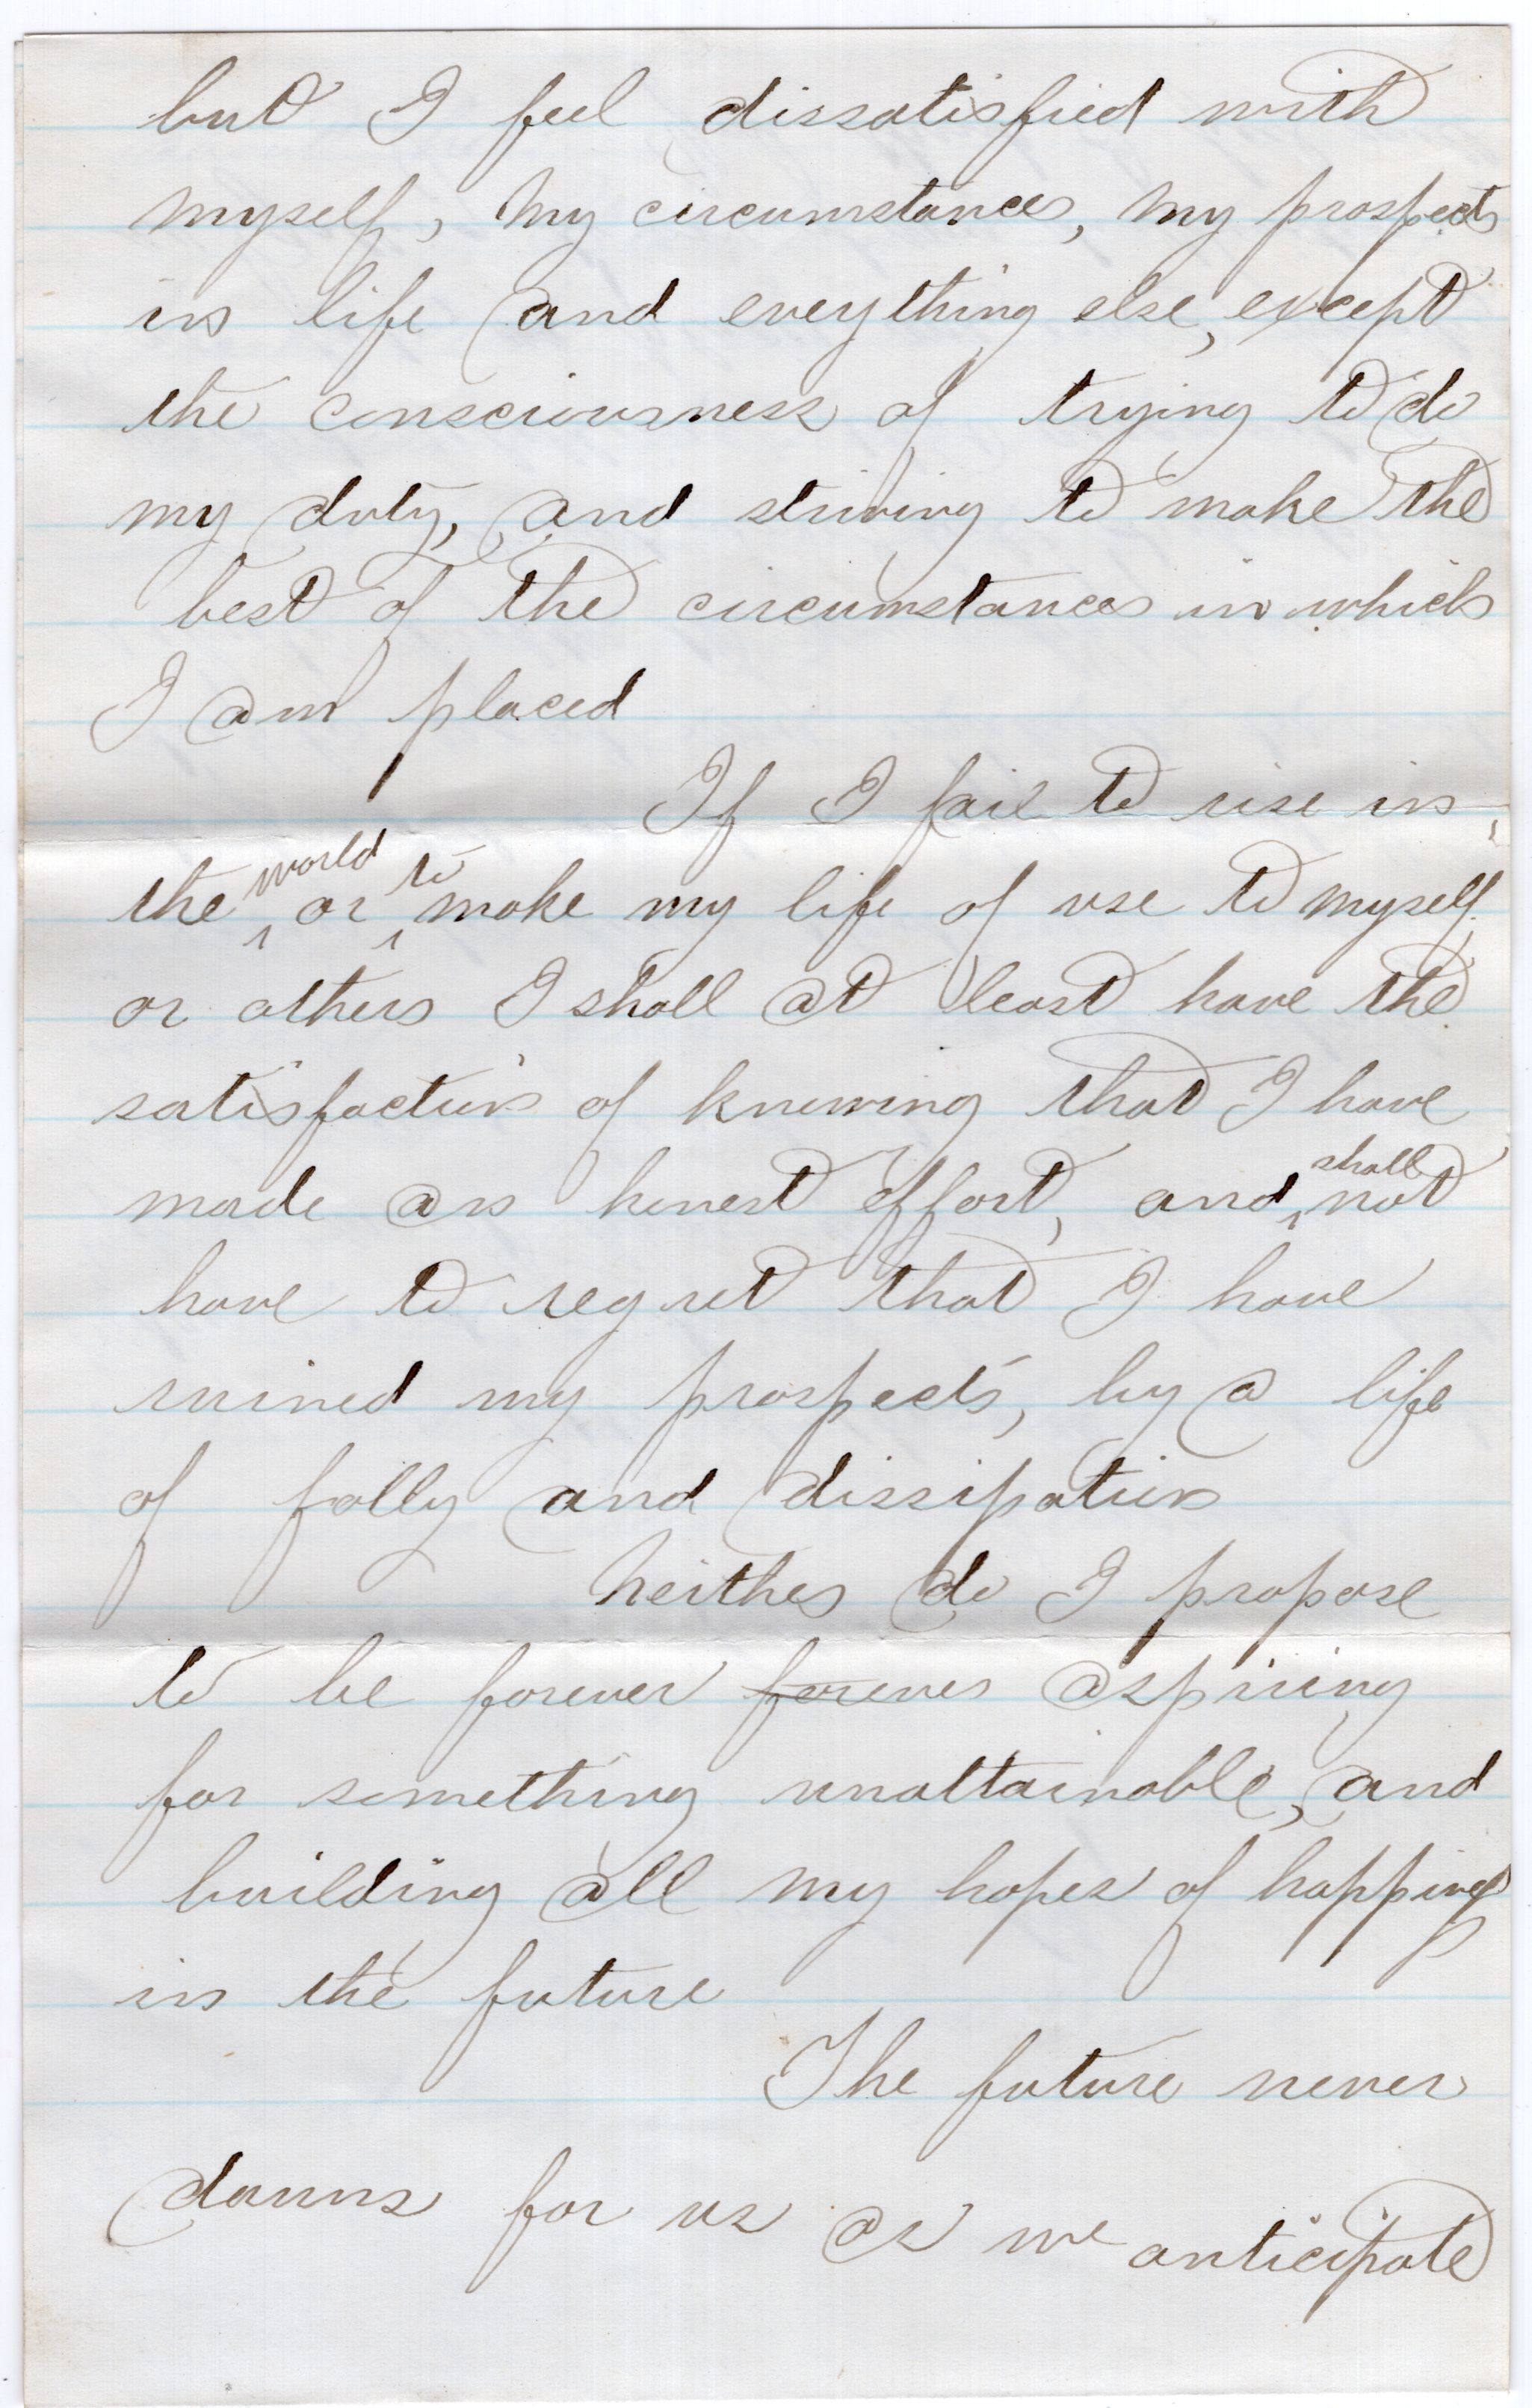 but I feel dissatisfied with
myself, My circumstances, My prospects
in life and everything else, except
the consciousness of trying to do
my duty, and striving to make the
best of the circumstances in which
I am placed
If I fail to rise in
the world or to make my life of use to myself
or others I shall at least have the
satisfaction of knowing that I have
made an honest effort, and shall not
have to regret that I have
ruined my prospects, by a life
of folly and dissipation
Neither do I propose
to be forever forever aspiring
for something unattainable, and
building all my hopes of happiness
in the future
The future never
dawns for us as we anticipate